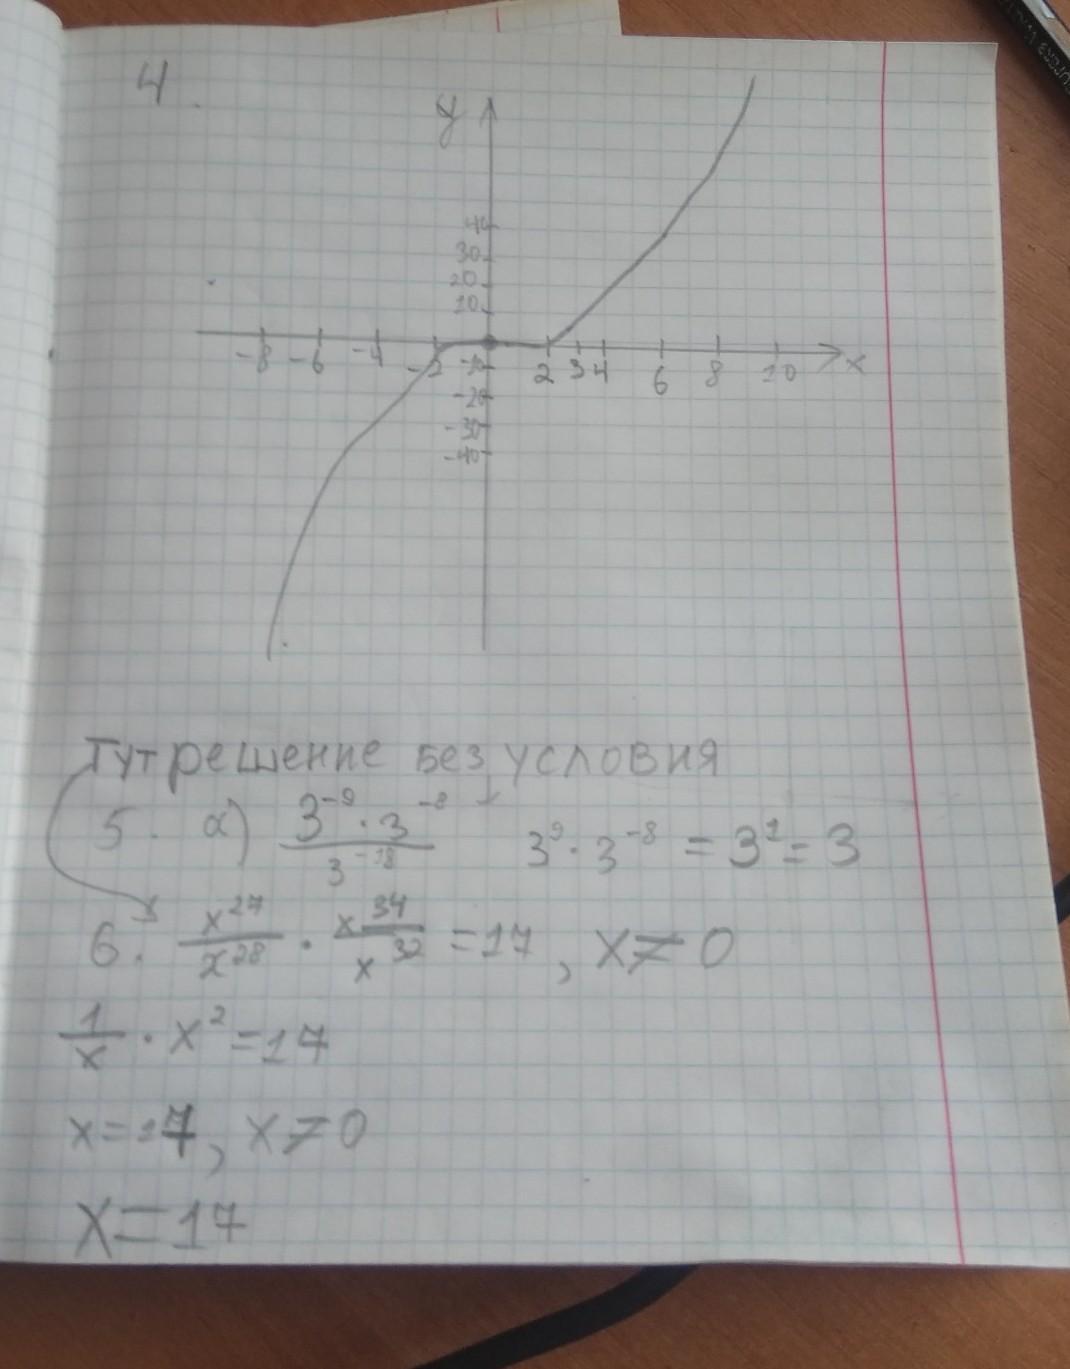 4.
y
40
30
20
10
-8 -6 -4 -2 2 3 4 6 8 10 x
-10
-20
-30
-40
Тут решение без условия
5. а) 3⁻⁹ · 3⁻⁸ / 3⁻¹⁸ 3⁹ · 3⁻⁸ = 3¹ = 3
6. x²⁷ / x²⁸ · x³⁴ / x³² = 17, x ≠ 0
1 / x · x² = 17
x = 17, x ≠ 0
x = 17